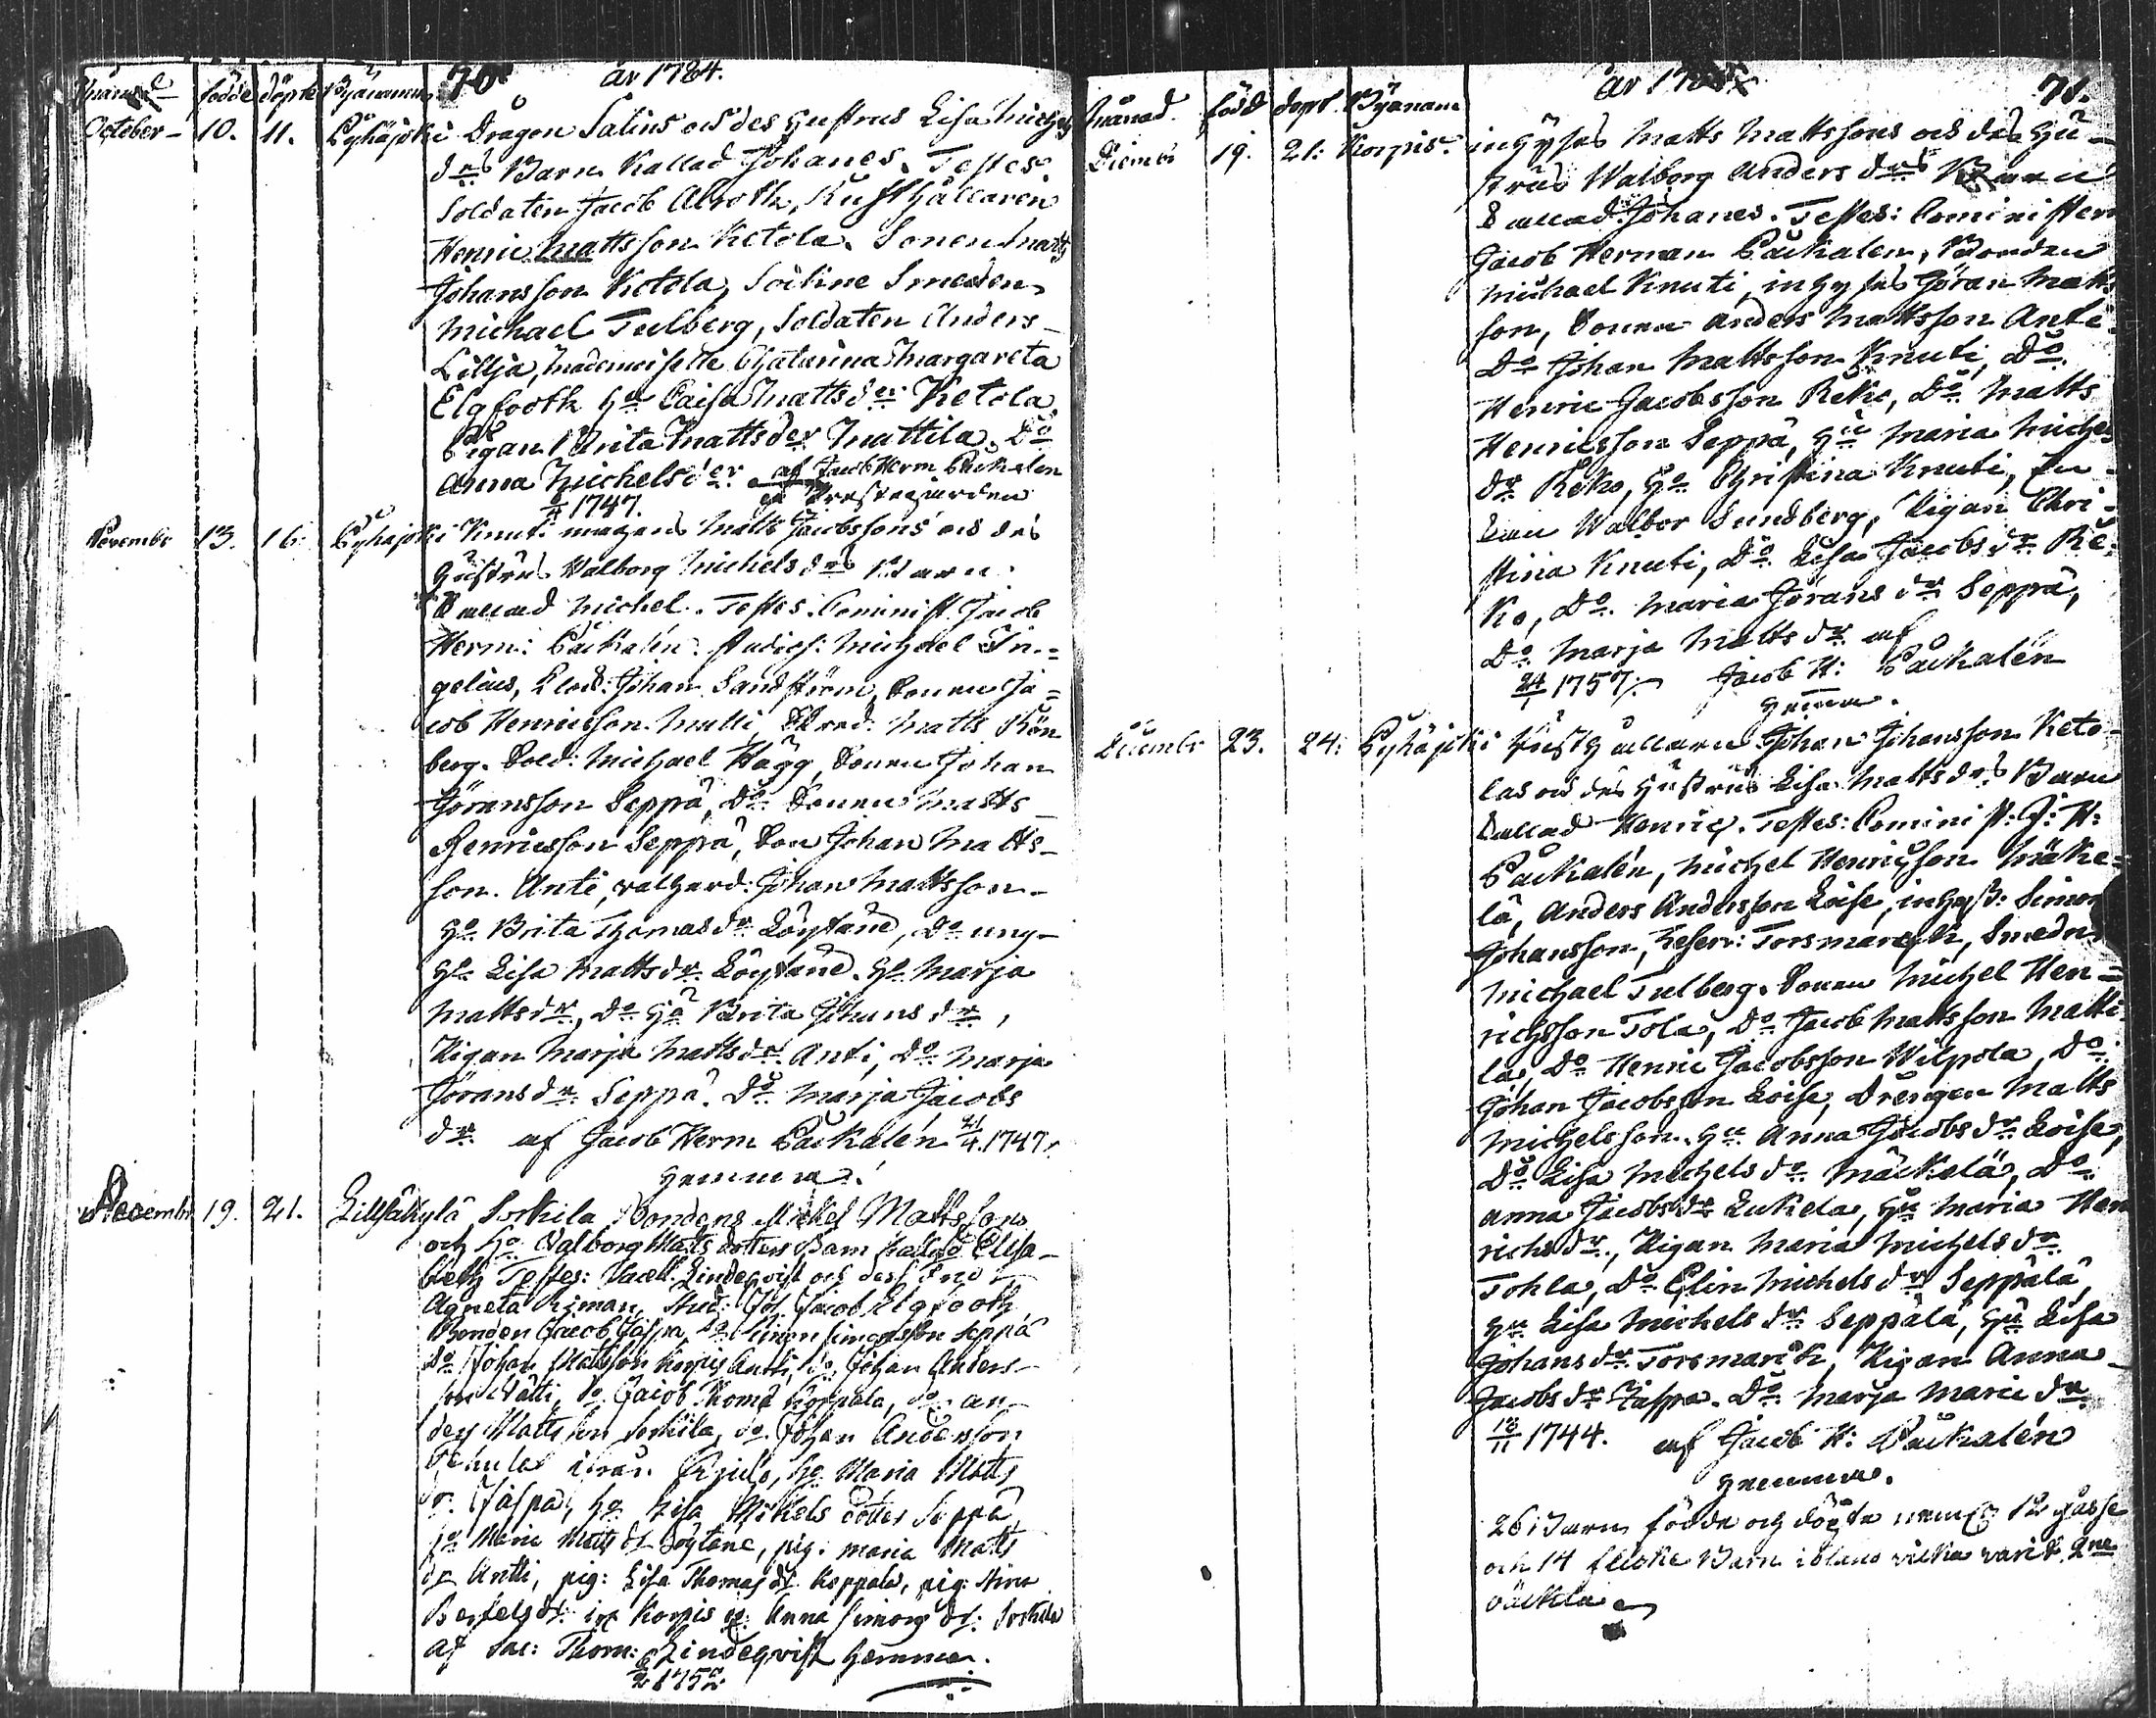 70. år 1784.
Månad födde döpte Bÿanamn
October - 10. 11. Pyhäjoki Dragon Salins och des Hustrus Lisa Michels
drs Barn Kallad Johanes. Testes.
Soldaten Jacob Alroth, Rusthållaren
Henric Mattsson Ketola. Sonen Matts
Johansson Ketola, Sockne Smeden
Michael Tulberg, Soldaten Anders
Lillja, Mademoiselle Chatarina Margareta
Elgfooth Hu Caisa Mattsder Ketola
Pigan Brita Mattsder Mattila. Do
Anna Michelsder af Jacob Herm Packalen
i Prestegården
1747.
Novembr 13. 16. Pyhajoki Knuti magens Matts Jacobssons och des
Hustrus Walborg Michels drs Barn
Kallad Michel. Testes. Cominist. Jacob
Herm: Packalen. Michael In=
gelius, Klock: Johan Sandström, Sonen Ja=
cob Henricsson Mulli, Matts Rön
berg. Sold: Michael Hägg, Sonen Johan
Göransson Seppä, Do Sonen Matts
Henricsson Seppä, Son Johan Matts-
son Anti, Johan Mattsson
Ho Brita Thomasdr Löytäne, Do ung
Ho Lisa Mattsdr Löytäne. Ho Marja
Mattsdr, Do Ho Brita Johansdr,
Pigan Marja Mattsdr Anti, Do Marja
Jöransdr Seppä. Do Marja Jacobs
dr af Jacob Herm Packalén 21/4. 1747.
Hemma.
Decembr 19. 21. Lillsäkylä Sorkila Bondens Mickel Mattssons
och Ho Valborg Matts dotters Barn Kallad Elisa-
beth Testes: Sacell. Lindeqvist och dess
Agneta Ryman, Stud: Joh Jacob Elgfooth
Bonden Jacob Jaspa, Do Simon Simonsson Seppä
Do Johan Mattsson Korpis Antti, do Johan Anders-
son Nätti, do Jacob Thoma Korpala, do An-
ders Mattsson Sorkila, do Johan Andersson
ifrån Ho Maria Matts
dr. Jaspa, Ho Lisa Mickels dotter Seppä
Ho Maria Matts dr Löytäne, pig: Maria Matts
dr Antti, pig: Lisa Thomas dr Korpala, pig: Stina
Bertelsdr: ifr Korpis Anna Simons dr: Sorkila
af Sac: Thom: Lindeqvist Hemma.
6/2 1752
år 1784 71.
Månad född döpt. Byänamn
Decembr 19. 21: Korpis. inhyses Matts Mattssons och des Hu-
strus Walborg Anders drs Barn
Kallad Johanes. Testes: Cominister
Jacob Herman Packalen, Bonden
Michael Knuti, inhyses Göran Matts
son, Sonen Anders Mattsson Anti
Do Johan Mattsson Knuti, Do
Henric Jacobsson Reko, Do Matts
Henricsson Seppä, Hu Maria Michels
dr Reko, Ho Christina Knuti, En-
kan Walbor Sundberg, Pigan Chri-
stina Knuti, Do Lisa Jacobs dr Re-
ko, Do Maria Jörans dr Seppä,
Do Marja Matts dr af
24/ 1757. Jacob H: Packalén
Hemma.
Decembr 23. 24: Pyhäjoki Rusthållaren Johan Johansson Keto-
las och des Hustrus Lisa Matts drs Barn
Kallad Henric. Testes: Cominist: J: H:
Packalén, Michel Henricsson Mäke=
lä, Anders Andersson Loise, inhys: Simon
Johansson, Reserv: Torsmarck, Smeden
Michael Tulberg. Sonen Michel Hen=
ricsson Tola, Do Jacob Mattsson Matti
la, Do Henric Jacobsson Wilpola, Do
Johan Jacobsson Loise, Drengen Matts
Michelsson. Hu Anna Jacobs dr Loise,
Do Lisa Michels dr Mäckelä, Do
Anna Jacobs dr Lukela, Hu Maria Hen
richs dr, Pigan Maria Michels dr
Tohla, Do Elin Michels dr Seppälä,
Hu Lisa Michels dr Seppälä, Hu Lisa
Johans dr Torsmarck, Pigan Anna
Jacobs dr Jaspa. Do Marja Marie dr
18/11 1744. af Jacob H: Packalén
Hemma.
26 Barn födda och döpta neml 12 gåsse
och 14 flicke Barn ibland vilka varit 2ne
oäckta